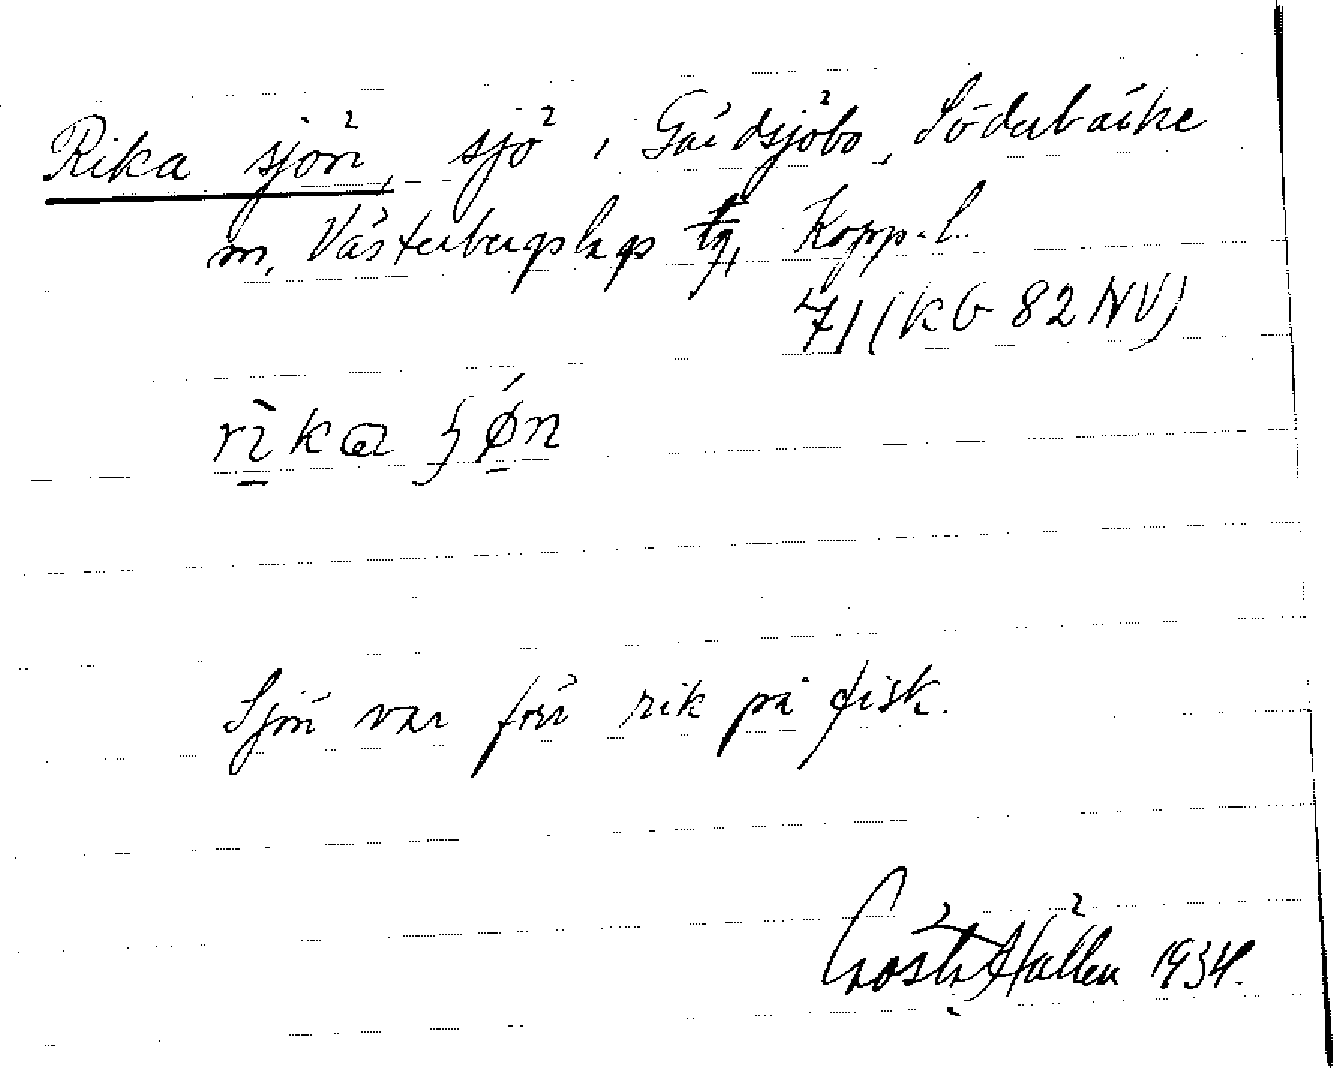 Rika sjön, sjö i Gårdsjöbo, Söderbärke
m, Västerbergslags tg, Kopp. l.
71 (KG 82 NV)
rìka ʃøn
Sjön var förr rik på fisk.
Gösta Hallén 1934.